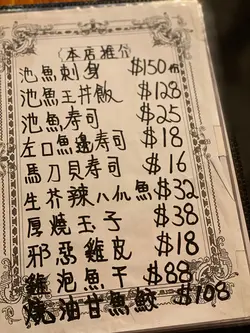 (本店推介)
池魚刺身 $150份
池魚王丼飯 $128
池魚寿司 $25
左口魚邊寿司 $18
馬刀貝寿司 $16
生芥辣八爪魚 $32
厚燒玉子 $38
邪惡雞皮 $18
雞泡魚干 $88
燒油甘魚鮫 $108